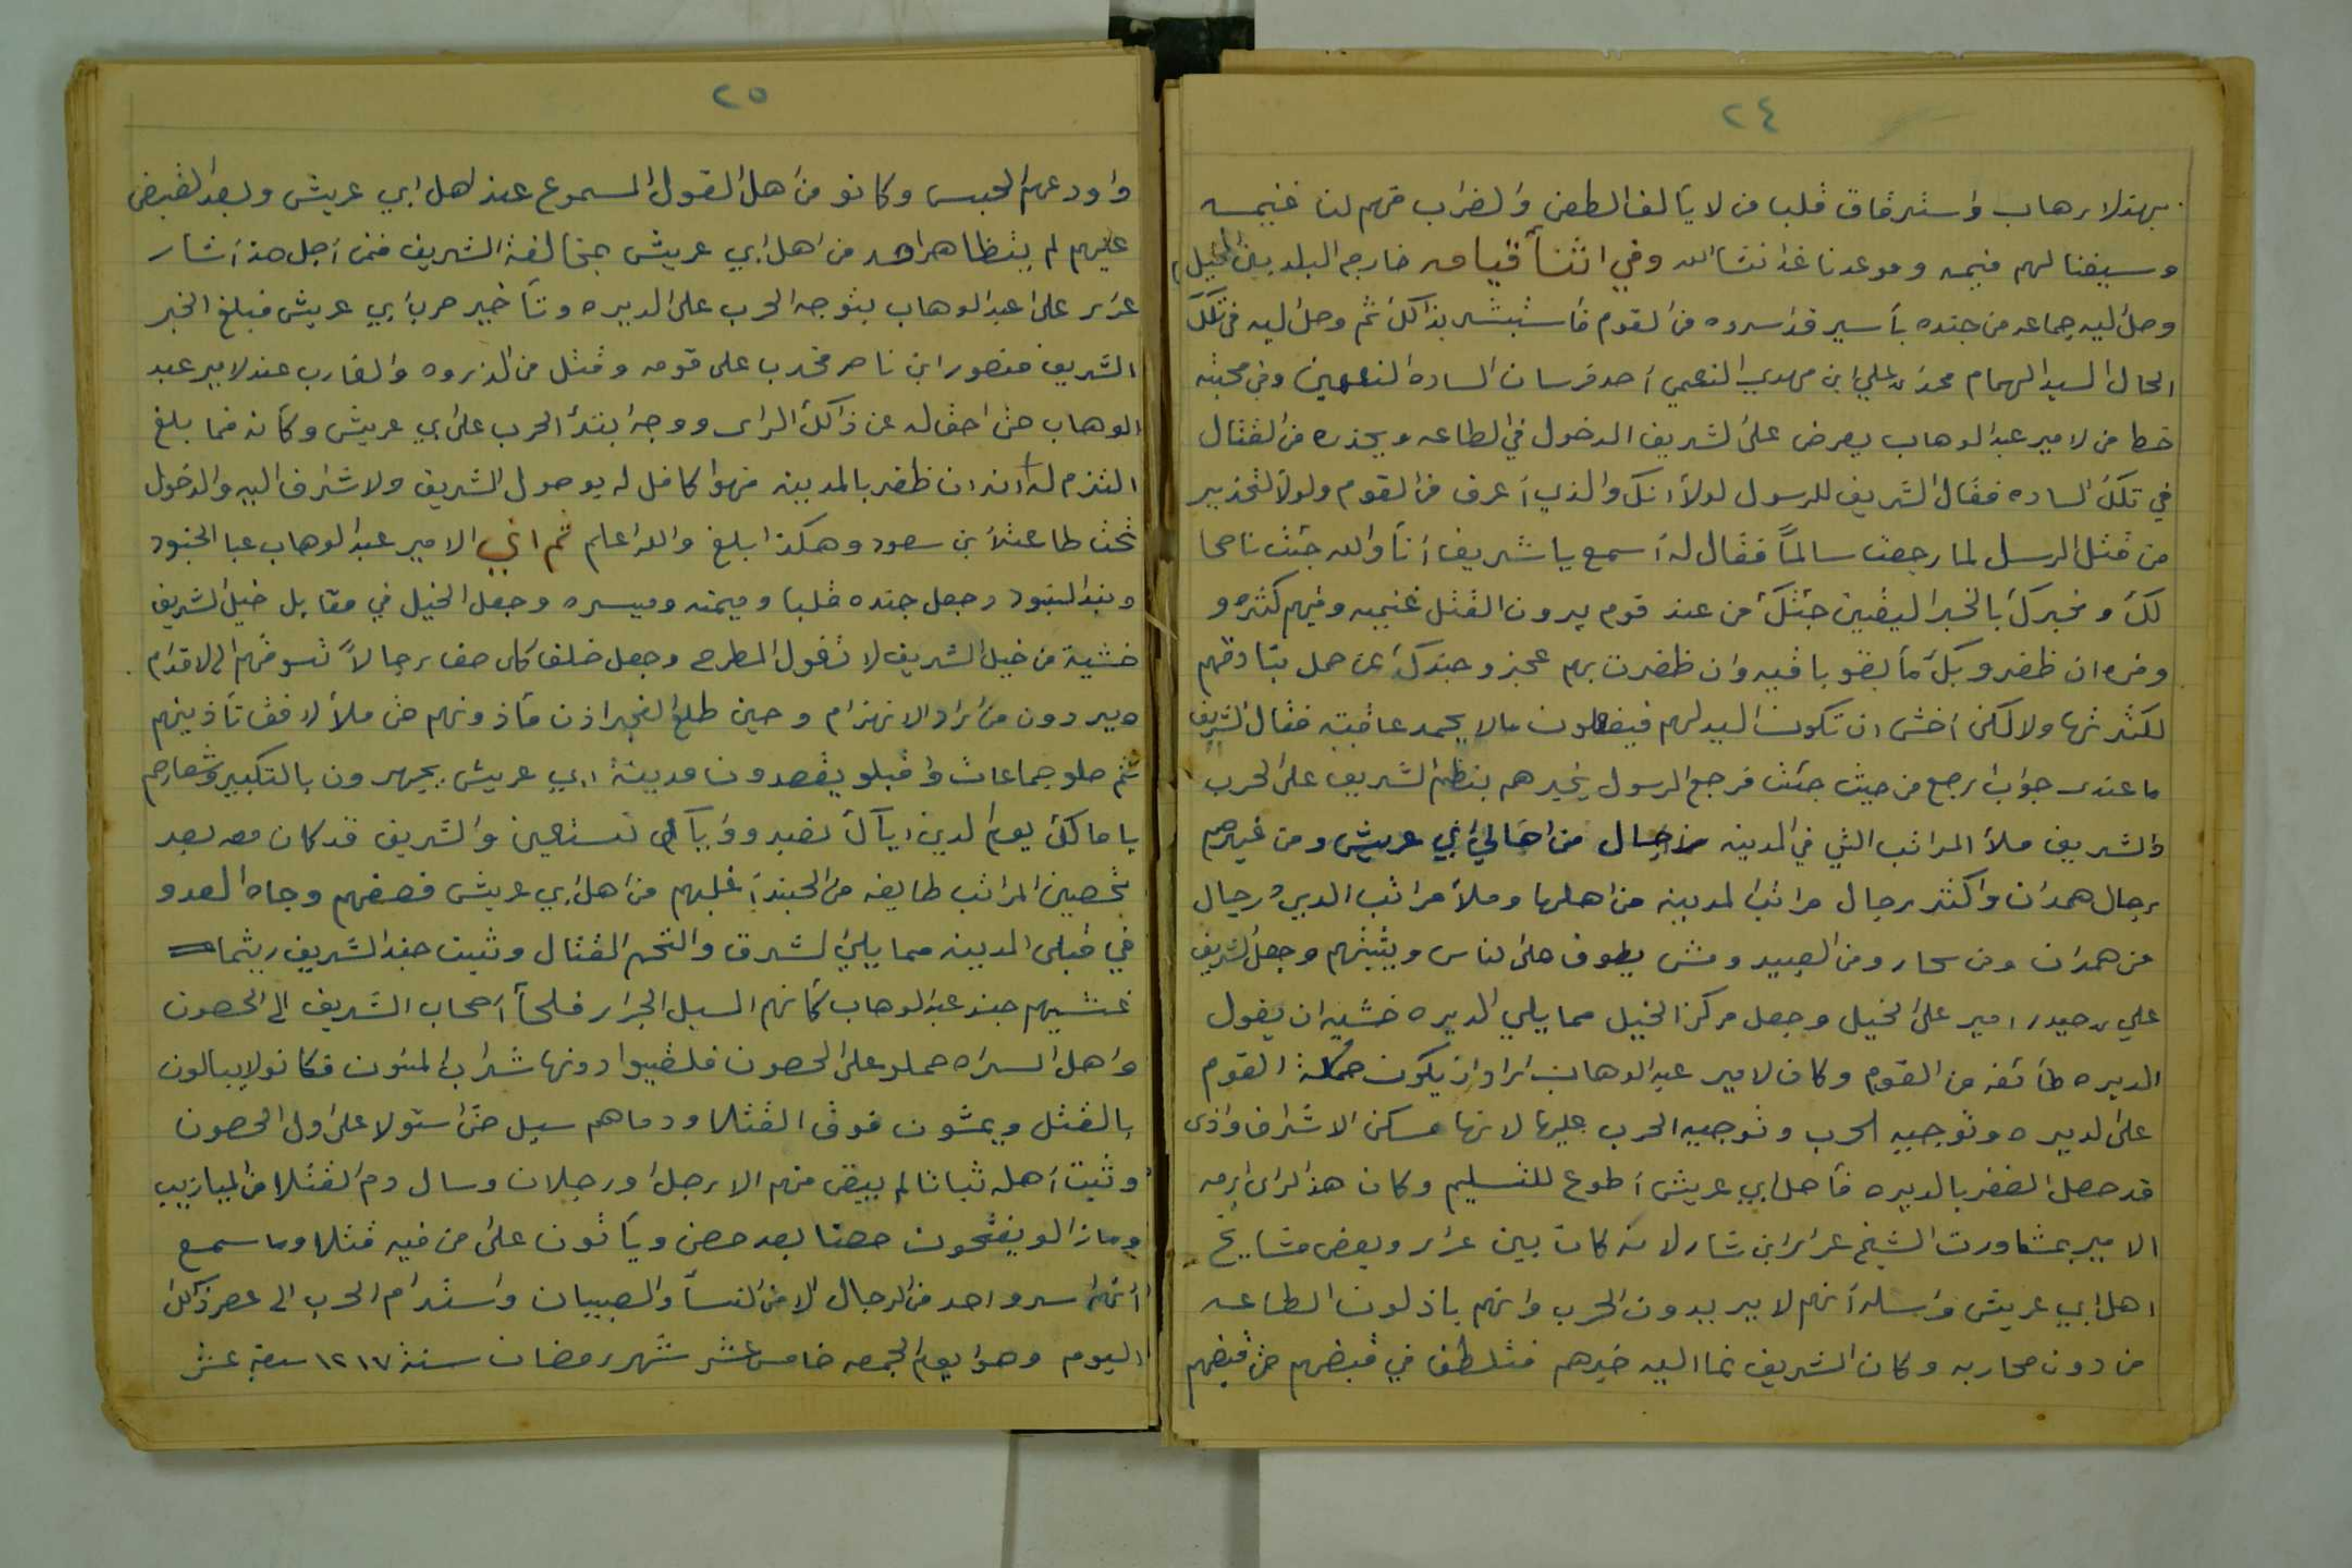 ٢٤
بهذلا رهاب واسترقاق قلب من لا يألف الطعن والضراب فهم لنا غنيمه
وسيفنا لهم فيمه وموعدنا غدا نشاالله وفي اثنأ قيامه خارجه البلد بين الخيل
وصل اليه جماعه من جنده بأسير قد اسروه من القوم فأستبشر بذالك ثم وصل اليه في تلك
الحال السيد الهمام محمد بن علي ابن مهدي النعمي أحد فرسان الساده النعمين وفي محبته
خطا من لامير عبد الوهاب يعرض على الشريف الدخول في الطاعه ويحذره من القتال
في تلك الساده فقال الشريف للرسول لولا انك والذي أعرف من القوم ولولا لتحذير
من قتل الرسل لما رجعت سالماً فقال له أسمع يا شريف أنا والله جئت ناصحا
لك ومخبرك بالخبر اليقين جئتك من عند قوم يرون القتل غنيمه وفيهم كثره و
وفره ان ظفرو بك ما بقو باقيه وان ظفرت بهم عجز وجندك عن حمل بنادقهم
لكثرتها ولاكن أخشى ان تكون اليد لهم فيفعلون مالا يحمد عاقبته فقال الشريف
ما عندى جواب ارجع من حيث جئت فرجع الرسول يخبرهم بنظم الشريف على الحرب
والشريف ملأ المراتب التي في المدينه رجال من اهالي ابي عريش ومن غيرهم
رجال همدان واكثر رجال مراتب المدينه من اهلها وملأ مراتب الديره رجال
من همدان ومن سحار ومن العبيد ومشى يطوف على الناس ويثبتهم وجعل الشريف
علي بن حيدر امير على الخيل وجعل مركز الخيل مما يلي الديره خشيه ان يغول
الديره طأئفه من القوم وكان لامير عبد الوهاب اراد ان يكون حملة القوم
على الديره وتوجيه الحرب وتوجيه الحرب عليها لانها مسكن الاشراف واذى
قد حصل الضفر بالديره فأهل ابي عريش أطوع للتسليم وكان هذا الراى ابرمه
الامير بمشاورت الشيخ عرار ابن شار لانه كان بين عرار وبعض مشايخ
اهل ابي عريش مراسله أنهم لا يريدون الحرب وانهم باذلون الطاعه
من دون محاربه وكان الشريف نما اليه خبرهم فتلطف في قبضهم حتى قبضهم
٢٥
واودعهم الحبس وكانو من اهل القول المسموع عند اهل ابي عريش وبعد القبض
عليهم لم يتظاهر احد من اهل ابي عريش بمخالفة الشريف فمن أجل هذ أشار
عرار على عبد الوهاب بتوجه الحرب على الديره وتأخير حرب ابي عريش فبلغ الخبر
الشريف منصور ابن ناصر مخدب على قومه وقتل من الذروه والغارب عند لامير عبد
الوهاب حتى احفاله عن ذالك الراى ووجه ابتدأ الحرب على ابي عريش وكأنه فما بلغ
التزم له أنه ان ظفر بالمدينه فهوا كافل له بوصول الشريف ولاشراف اليه والدخول
تحت طاعت ابن سعود وهكذا بلغ والله اعلم ثم ان الامير عبد الوهاب عبا الجنود
وبند البنود وجعل جنده قلبا وميمنه وميسره وجعل الخيل في مقابل خيل الشريف
خشية من خيل الشريف لا تغول المطرح وجعل خلف كل صف رجالاً تسوقهم الى الاقدام
ويردون من اراد الانهزام وحين طلع الفجر اذن مأذونهم حتى ملأ الافق تأذينهم
ثم صلو جماعات واقبلو يقصدون مدينة ابي عريش يجهرون بالتكبير وشعارهم
يا مالك يوم الدين اياك نعبد واياك نستعين والشريف قد كان معه بعد
تحصين المراتب طايفه من الجند أغلبهم من اهل ابي عريش فصفهم وجاه العدو
في قبلى المدينه مما يلي الشرق والتحم القتال وثبت جند الشريف ريثما
غشيهم جند عبد الوهاب كأنهم السيل الجرار فلحأ أصحاب الشريف الى الحصون
واهل السراه حملو على الحصون فلقيوا دونها شراب المنون فكانو لايبالون
بالقتل ويمشون فوق القتلا ودماهم سيل حتى استولا على اول الحصون
وثبت أهله ثباتا لم يبقى منهم الا رجل او رجلان وسال دم القتلا من الميازيب
وما زالو يفتحون حصنا بعد حصن ويأتون على من فيه قتلا وما سمع
أنهم اسرو احد من الرجال الا من النسأ والصبيان واستدام الحرب الى عصر ذالك
اليوم وهوا يوم الجمعه خامس عشر شهر رمضان سنة ١٢١٧ سبعة عشر